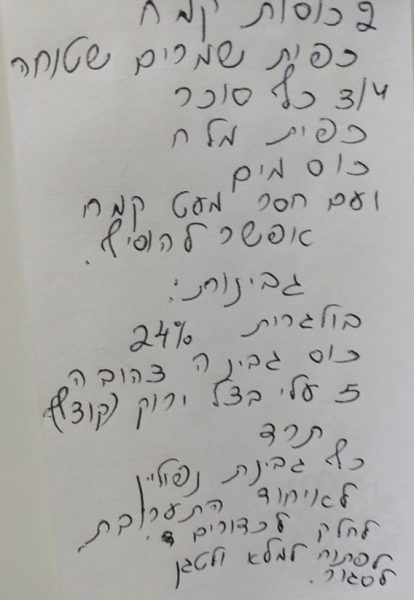 2 כוסות קמח
כפית שמרים שטוחה
3/4 כף סוכר
כפית מלח
כוס מים
ועם חסר מעט קמח
אפשר להוסיף.
גבינות:
בולגרית 24%
כוס גבינה צהובה
5 עלי בצל ירוק (קצוץ)
תרד
כף גבינת נפוליון
לאיחוד התערובת.
לחלק לכדורים
לפתוח למלא ולטגן
לסגור.